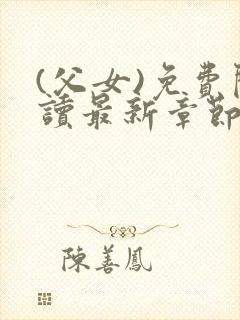 (父女)免費
讀最新章節
陳善鳳